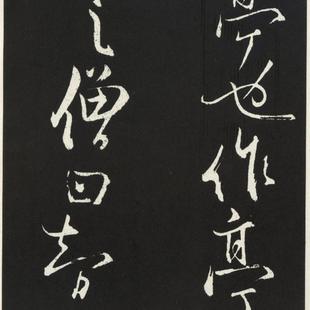 亭也作亭
之僧曰智